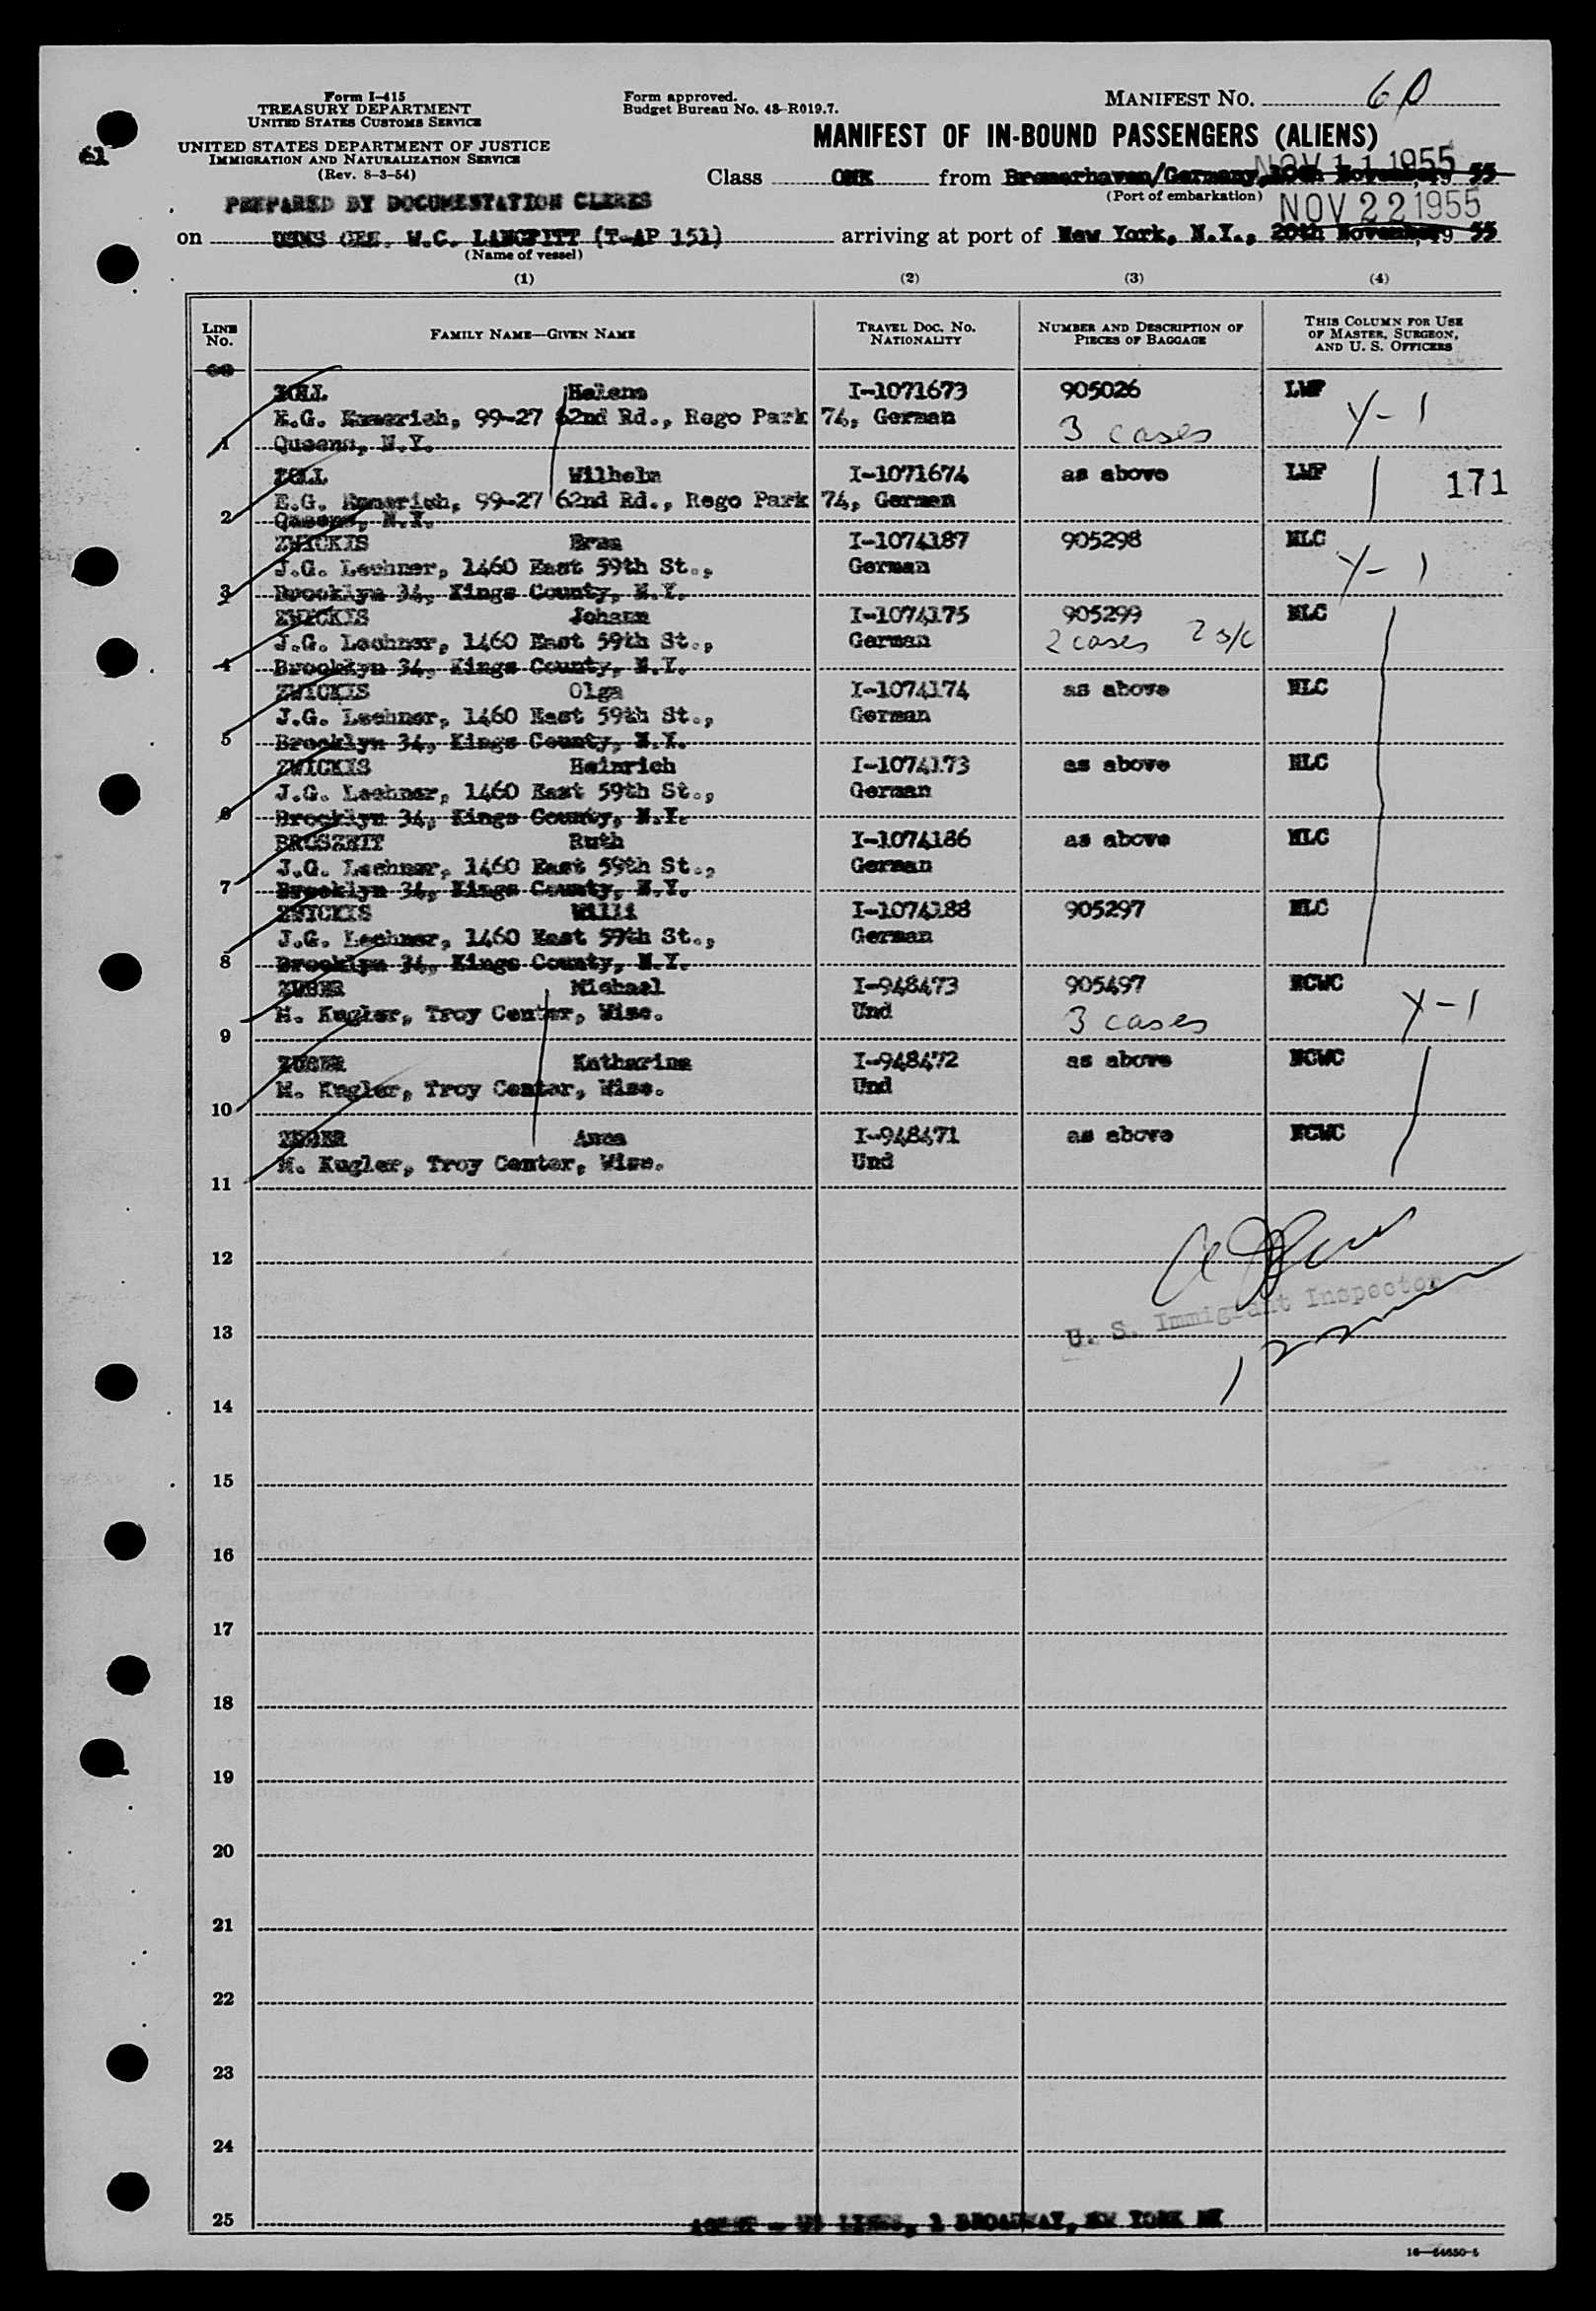 Form I-415
TREASURY DEPARTMENT
UNITED STATES CUSTOMS SERVICE
UNITED STATES DEPARTMENT OF JUSTICE
IMMIGRATION AND NATURALIZATION SERVICE
(Rev. 8-3-54)
Form approved.
Budget Bureau No. 43-R019.7.
MANIFEST NO.
MANIFEST OF IN-BOUND PASSENGERS (ALIENS)
61
NOV 11 1955
Class ONE from Bremerhaven/Germany, 10th November, 19 55
(Port of embarkation)
PREPARED BY DOCUMENTATION CLERKS
NOV 22 1955
on USNS GEN. W.C. LANGFITT (T-AP 151) arriving at port of New York, N.Y., 20th November, 19 55
(Name of vessel)
(1) (2) (3) (4)
LINE No. FAMILY NAME—GIVEN NAME TRAVEL DOC. NO. NATIONALITY NUMBER AND DESCRIPTION OF PIECES OF BAGGAGE THIS COLUMN FOR USE OF MASTER, SURGEON, AND U. S. OFFICERS
ZOLL Helene I-1071673 905026 LWF
E.G. Emmerich, 99-27 62nd Rd., Rego Park 74, German 3 cases Y-1
1 Queens, N.Y.
ZOLL Wilhelm I-1071674 as above LWF 171
E.G. Emmerich, 99-27 62nd Rd., Rego Park 74, German
2 Queens, N.Y.
ZWICKIS Erna I-1074187 905298 NLC
J.G. Lechner, 1460 East 59th St., German Y-1
3 Brooklyn 34, Kings County, N.Y.
ZWICKIS Johann I-1074175 905299 NLC
J.G. Lechner, 1460 East 59th St., German 2 cases 2 s/c
4 Brooklyn 34, Kings County, N.Y.
ZWICKIS Olga I-1074174 as above NLC
J.G. Lechner, 1460 East 59th St., German
5 Brooklyn 34, Kings County, N.Y.
ZWICKIS Heinrich I-1074173 as above NLC
J.G. Lechner, 1460 East 59th St., German
6 Brooklyn 34, Kings County, N.Y.
BROSZEIT Ruth I-1074186 as above NLC
J.G. Lechner, 1460 East 59th St., German
7 Brooklyn 34, Kings County, N.Y.
ZWICKIS Willi I-1074188 905297 NLC
J.G. Lechner, 1460 East 59th St., German
8 Brooklyn 34, Kings County, N.Y.
ZUGER Michael I-948473 905497 NCWC
M. Kugler, Troy Center, Wisc. Und 3 cases Y-1
9
ZUGER Katharina I-948472 as above NCWC
M. Kugler, Troy Center, Wisc. Und
10
ZUGER Anna I-948471 as above NCWC
M. Kugler, Troy Center, Wisc. Und
11
12
U. S. Immigrant Inspector
13
14
15
16
17
18
19
20
21
22
23
24
25 AGENT - US LINES, 1 BROADWAY, NEW YORK NY